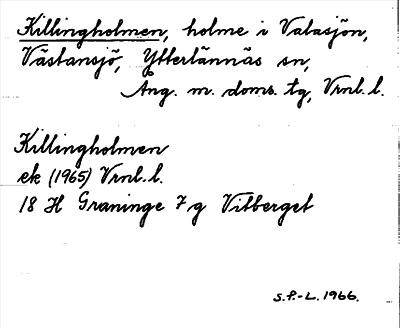 Killingholmen, holme i Valasjön,
Västansjö, Ytterlännäs sn,
Ång. m. doms. tg, Vrnl. l.
Killingholmen
ek (1965) Vrnl. l.
18 H Graninge 7 g Vitberget
S.P.-L. 1966.